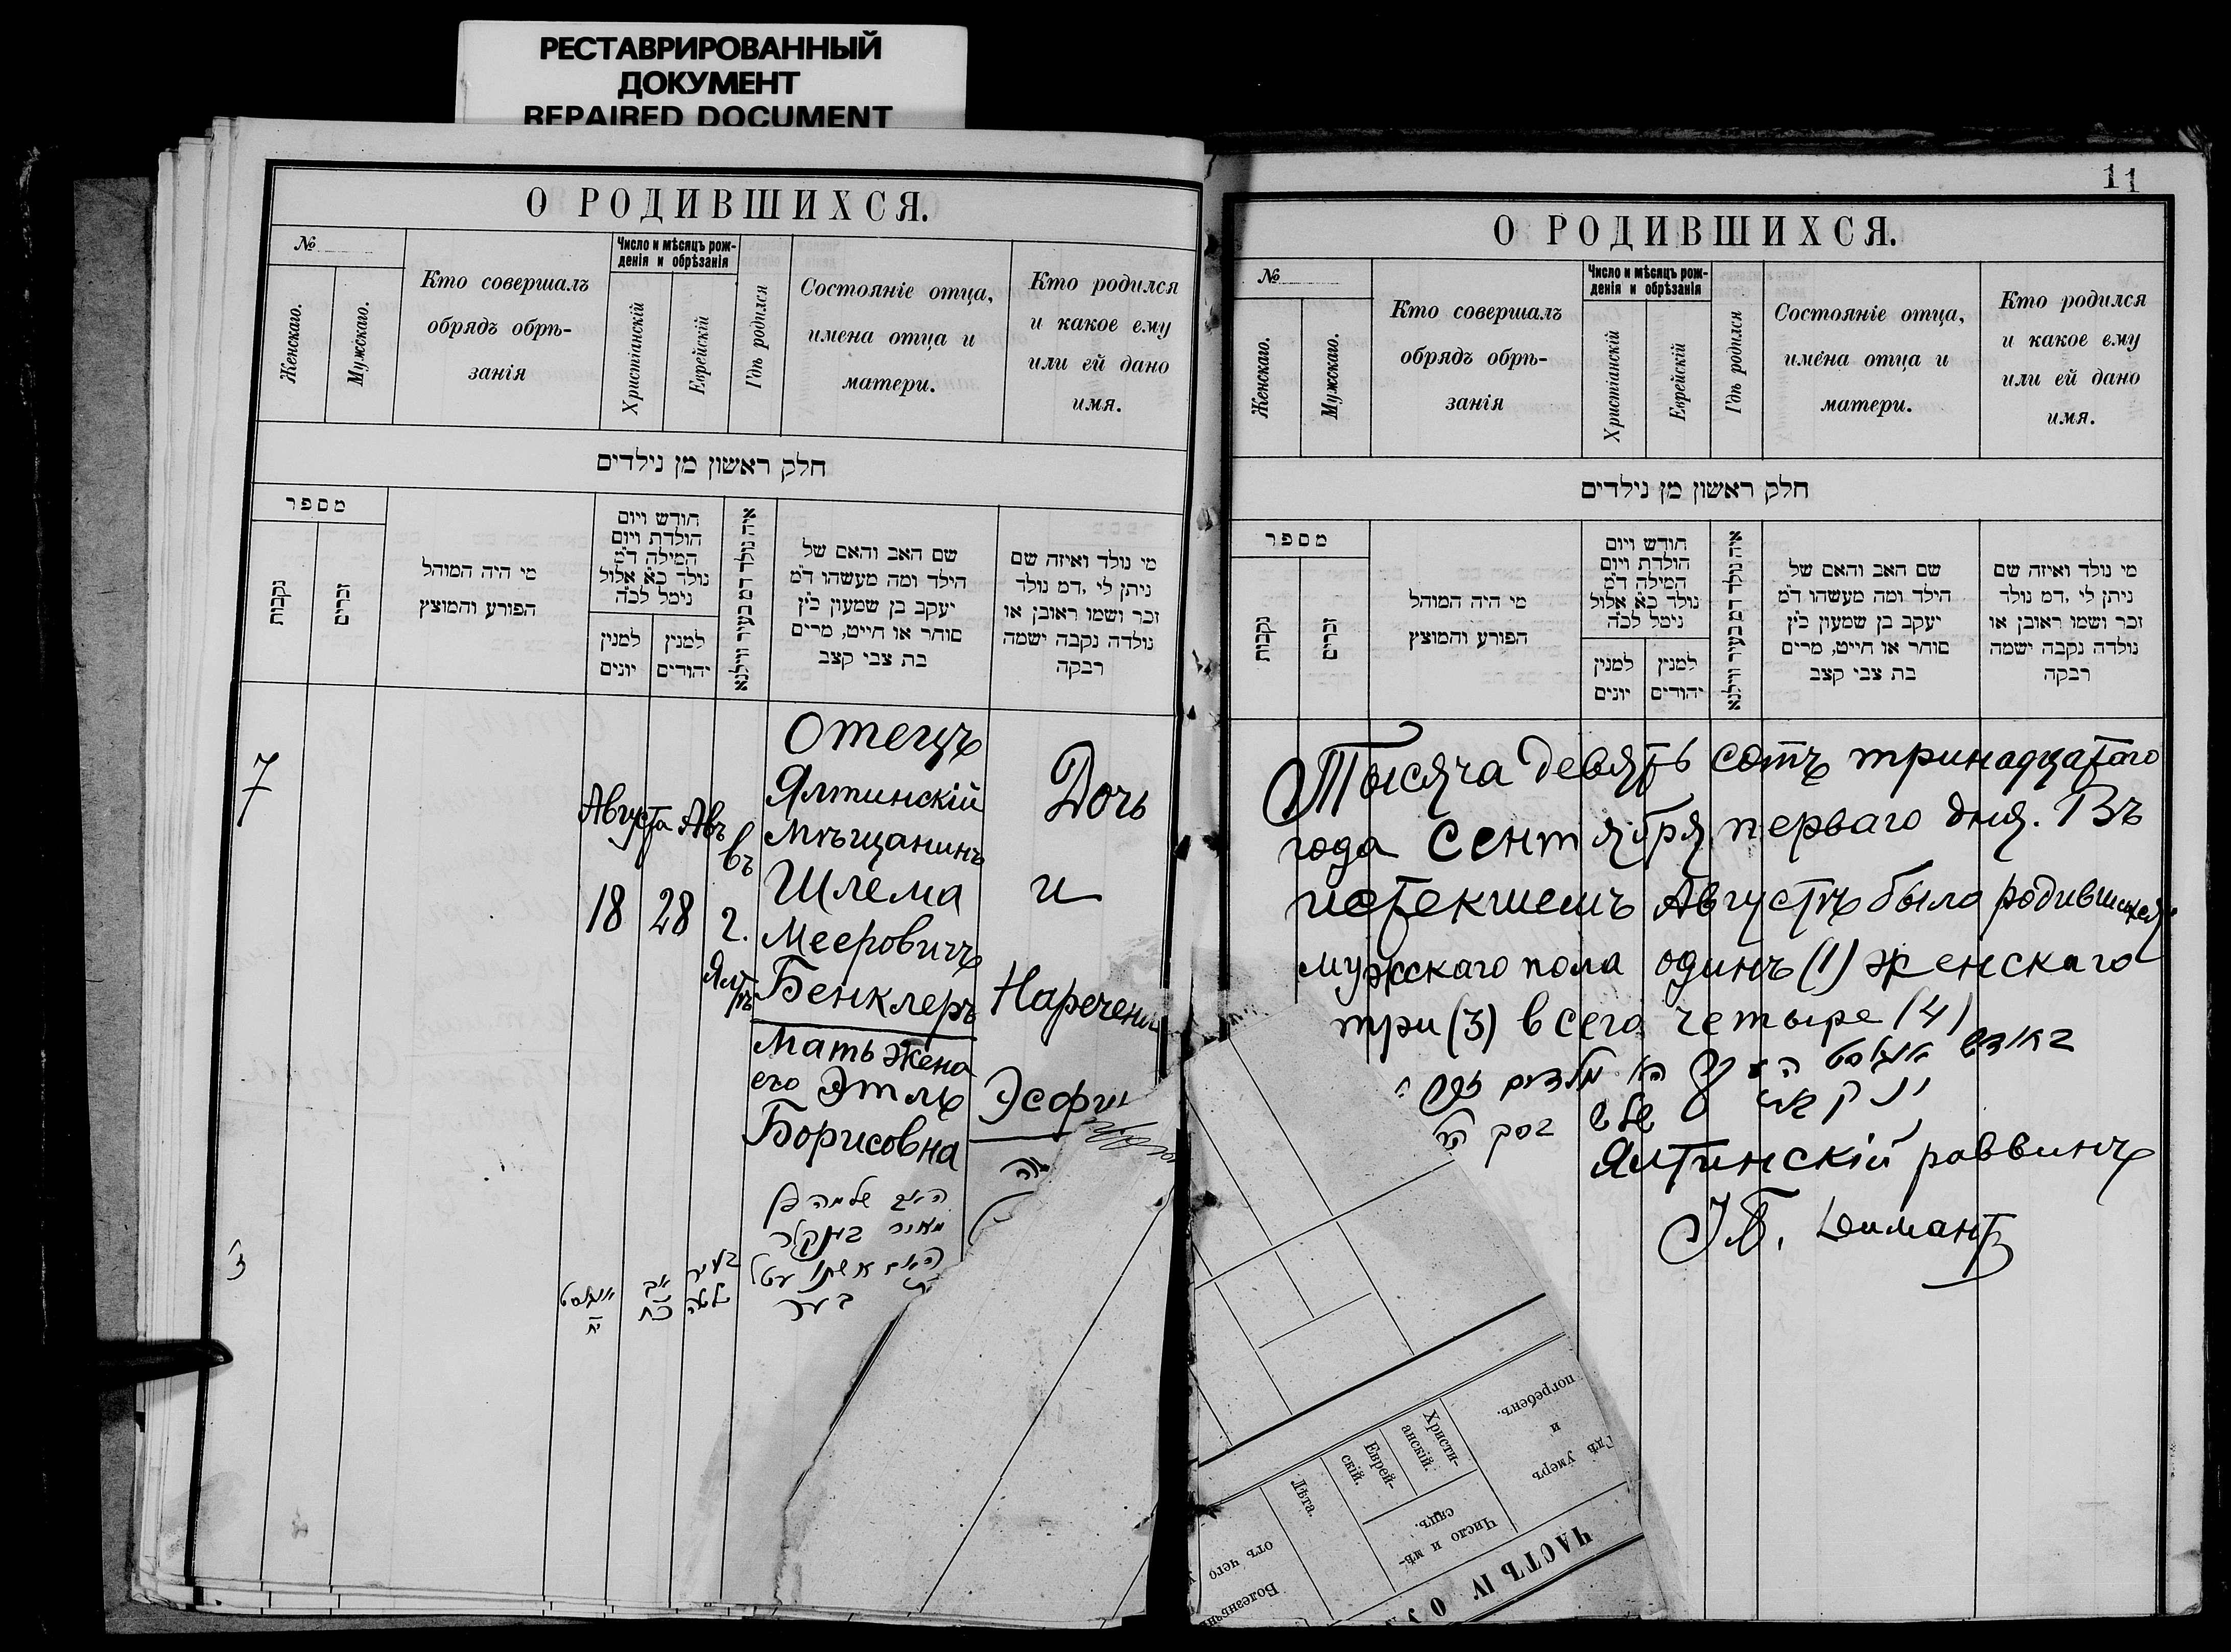 РЕСТАВРИРОВАННЫЙ
ДОКУМЕНТ
REPAIRED DOCUMENT
О РОДИВШИХСЯ.
№
Женскаго.
Мужскаго.
Кто совершалъ
обрядъ обрѣ-
занія
Число и мѣсяцъ рож-
денія и обрѣзанія
Христіанскій
Еврейскій
Гдѣ родился
Состояніе отца,
имена отца и
матери.
Кто родился
и какое ему
или ей дано
имя.
חלק ראשון מן נילדים
מספר
נקבות
זכרים
מי היה המוהל
הפורע והמוצץ
חודש ויום
הולדת ויום
המילה ד"מ
נולד כ"א אלול
נימל לכ"ה
למנין
יונים
למנין
יהודים
איה נולד דמ בעיר ווילנא
שם האב והאם של
הילד ומה מעשהו ד"מ
יעקב בן שמעון כ"ץ
סוחר או חייט, מרים
בת צבי קצב
מי נולד ואיזה שם
ניתן לי, דמ נולד
זכר ושמו ראובן או
נולדה נקבה ישמה
רבקה
7
Августа
18
Авъ
28
въ
г.
Ялтѣ
Отецъ
Ялтинскій
Мѣщанинъ
Шлема
Мееровичъ
Бенклеръ
Мать жена
его Этль
Борисовна
Дочь
и
Наречена
Эсфи
3
אויגוסט
יח
אב
כח
בעיר
יאלטה
האב שלמה בן
מאיר בענקלר
האם אשתו עטל
בער
11
О РОДИВШИХСЯ.
№
Женскаго.
Мужскаго.
Кто совершалъ
обрядъ обрѣ-
занія
Число и мѣсяцъ рож-
денія и обрѣзанія
Христіанскій
Еврейскій
Гдѣ родился
Состояніе отца,
имена отца и
матери.
Кто родился
и какое ему
или ей дано
имя.
חלק ראשון מן נילדים
מספר
נקבות
זכרים
מי היה המוהל
הפורע והמוצץ
חודש ויום
הולדת ויום
המילה ד"מ
נולד כ"א אלול
נימל לכ"ה
למנין
יונים
למנין
יהודים
איה נולד דמ בעיר ווילנא
שם האב והאם של
הילד ומה מעשהו ד"מ
יעקב בן שמעון כ"ץ
סוחר או חייט, מרים
בת צבי קצב
מי נולד ואיזה שם
ניתן לי, דמ נולד
זכר ושמו ראובן או
נולדה נקבה ישמה
רבקה
Тысяча девять сотъ тринадцатаго
года Сентября перваго дня. Въ
истекшемъ Августѣ было родившихся
мужскаго пола одинъ (1) женскаго
три (3) всего четыре (4)
Ялтинскій раввинъ
Димантъ
ЧАСТЬ IV О У
Гдѣ умеръ
и
погребенъ.
Число и мѣ-
сяцъ.
Христи-
анскій.
Еврей-
скій.
Лѣта.
отъ чего